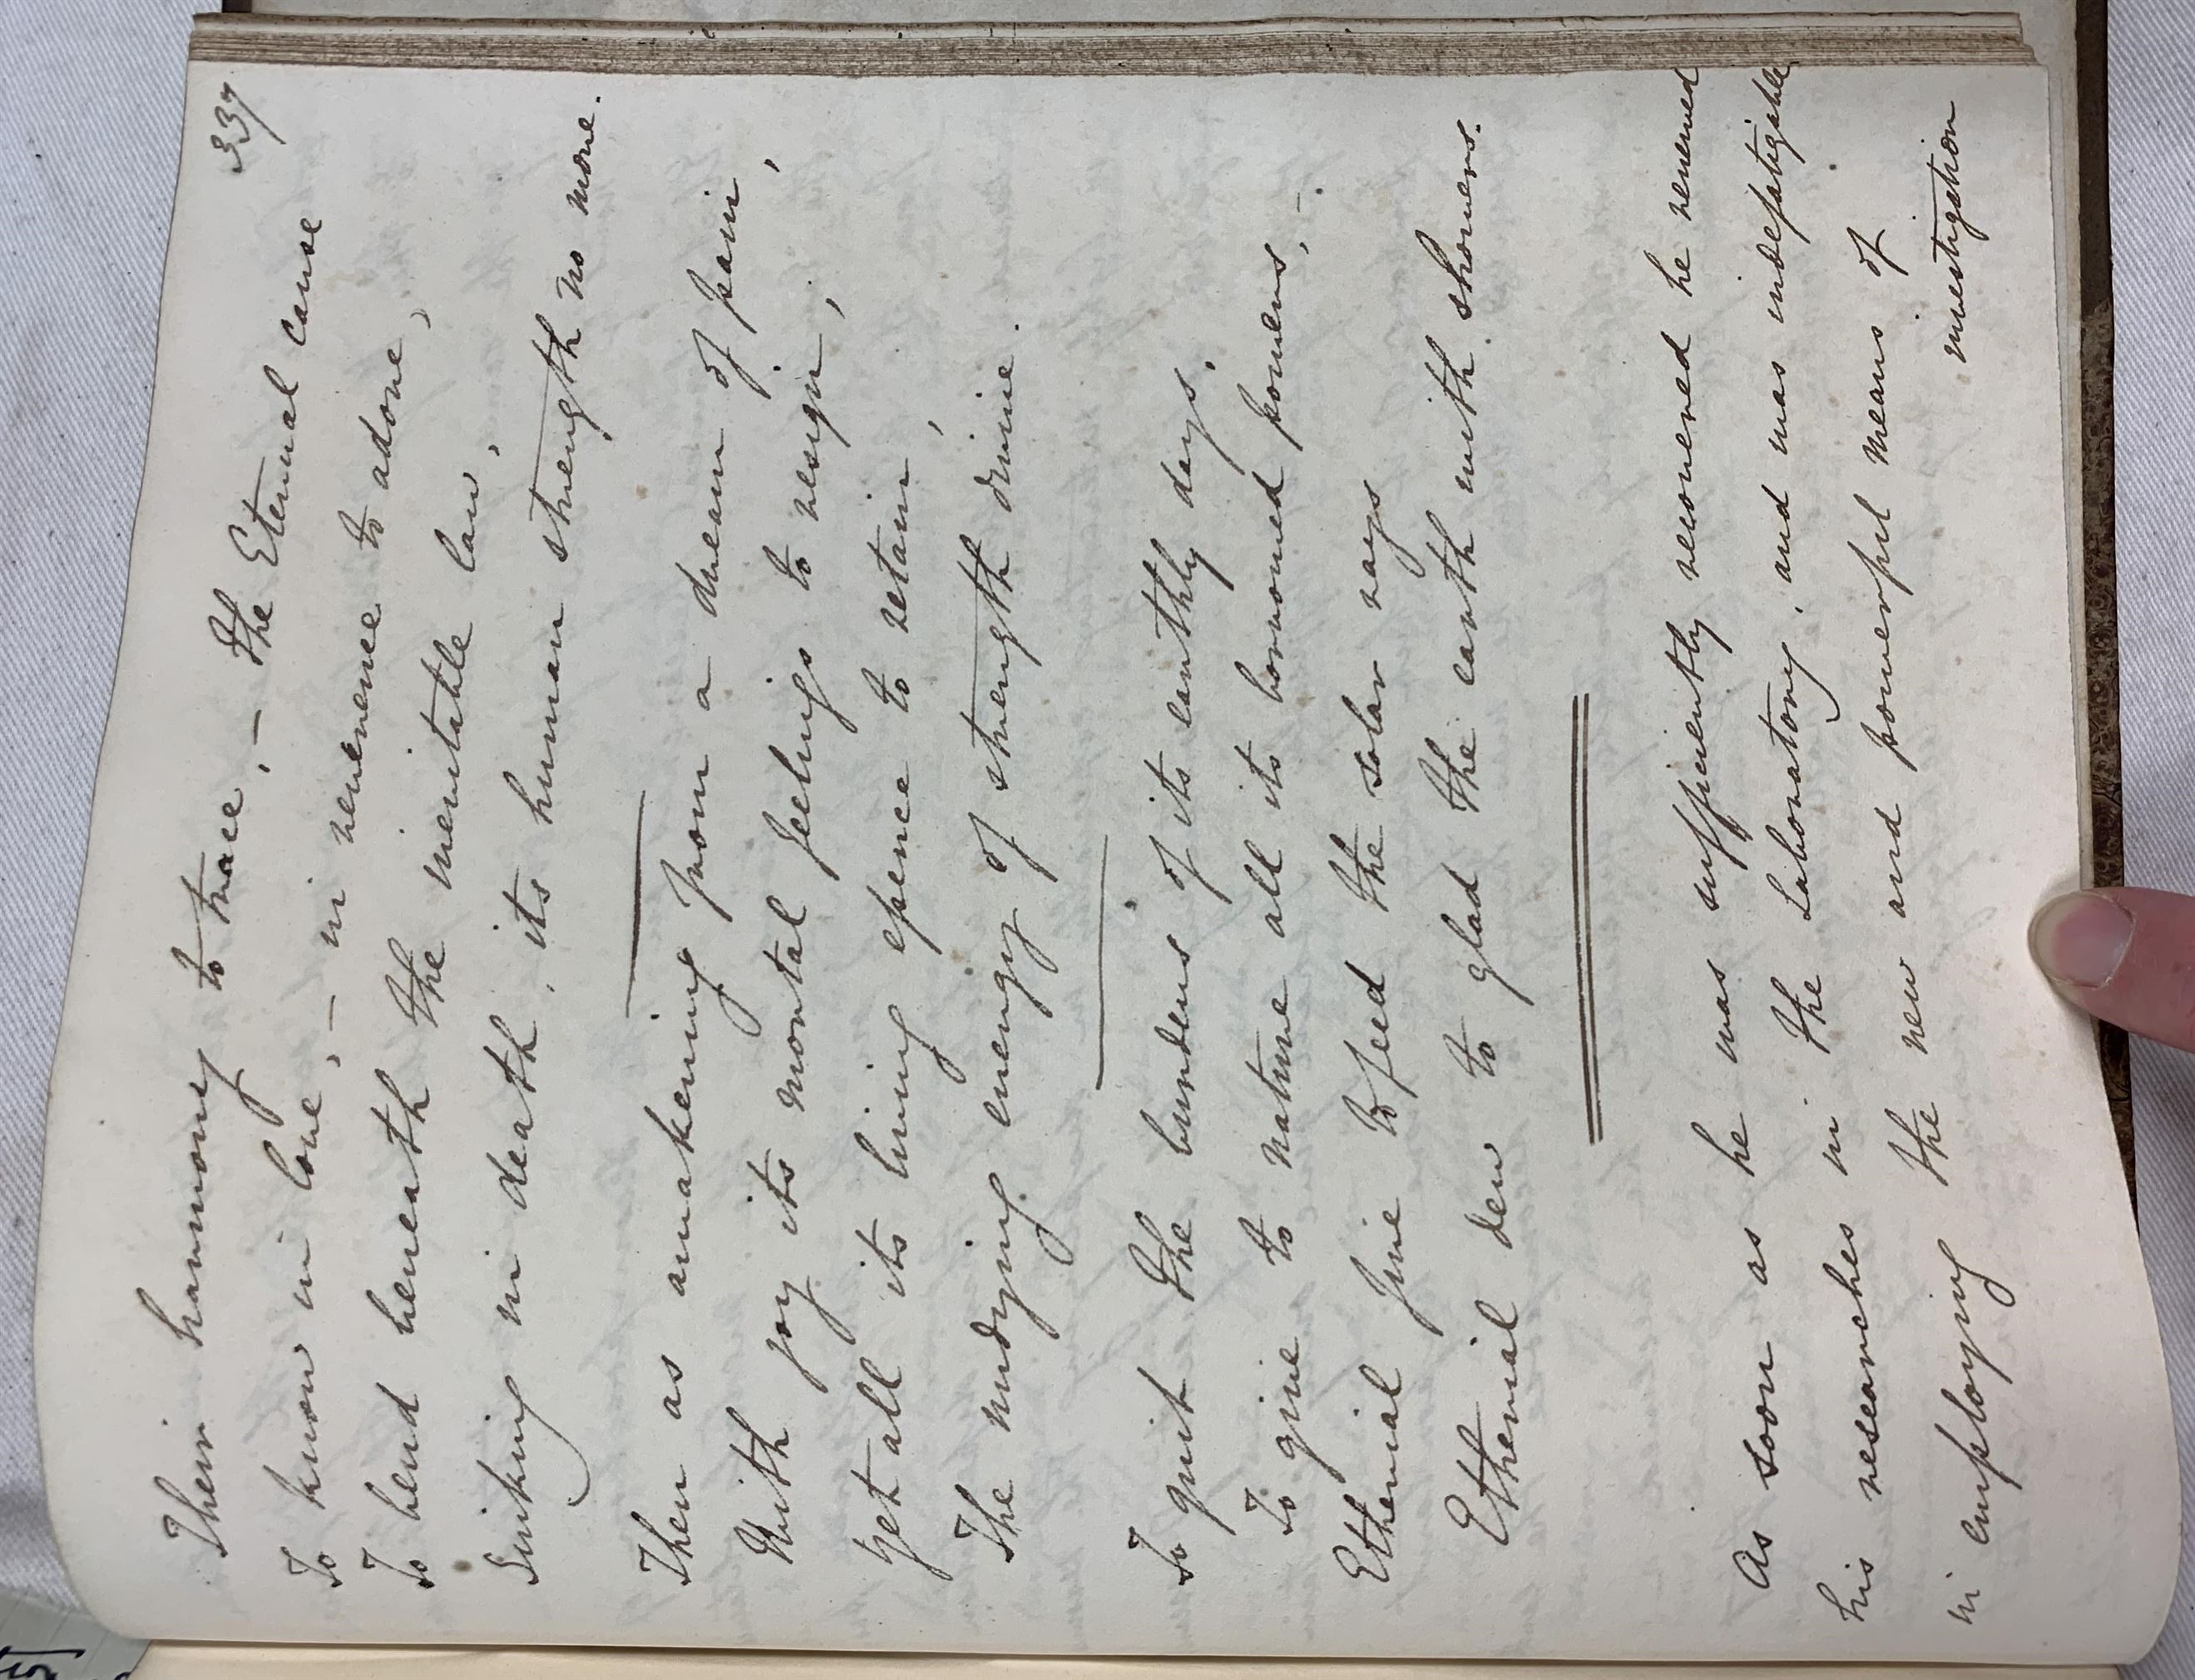 337
Their harmony to trace, – the Eternal cause
To know in love, – in reverence to adore,
To bend beneath the inevitable law,
Sinking in death, its human strength no more.
Then as awakening from a dream of pain,
With joy its mortal feelings to resign,
Yet all its living essence to retain,
The undying energy of strength divine.
To quit the burdens of its earthly days,
To give to nature all its borrowed powers, –
Etherial fire to feed the solar rays
Etherial dew to glad the earth with showers.
As soon as he was sufficiently recovered he renewed
his researches in the Laboratory, and was indefatigable
in employing the new and powerful means of
investigation